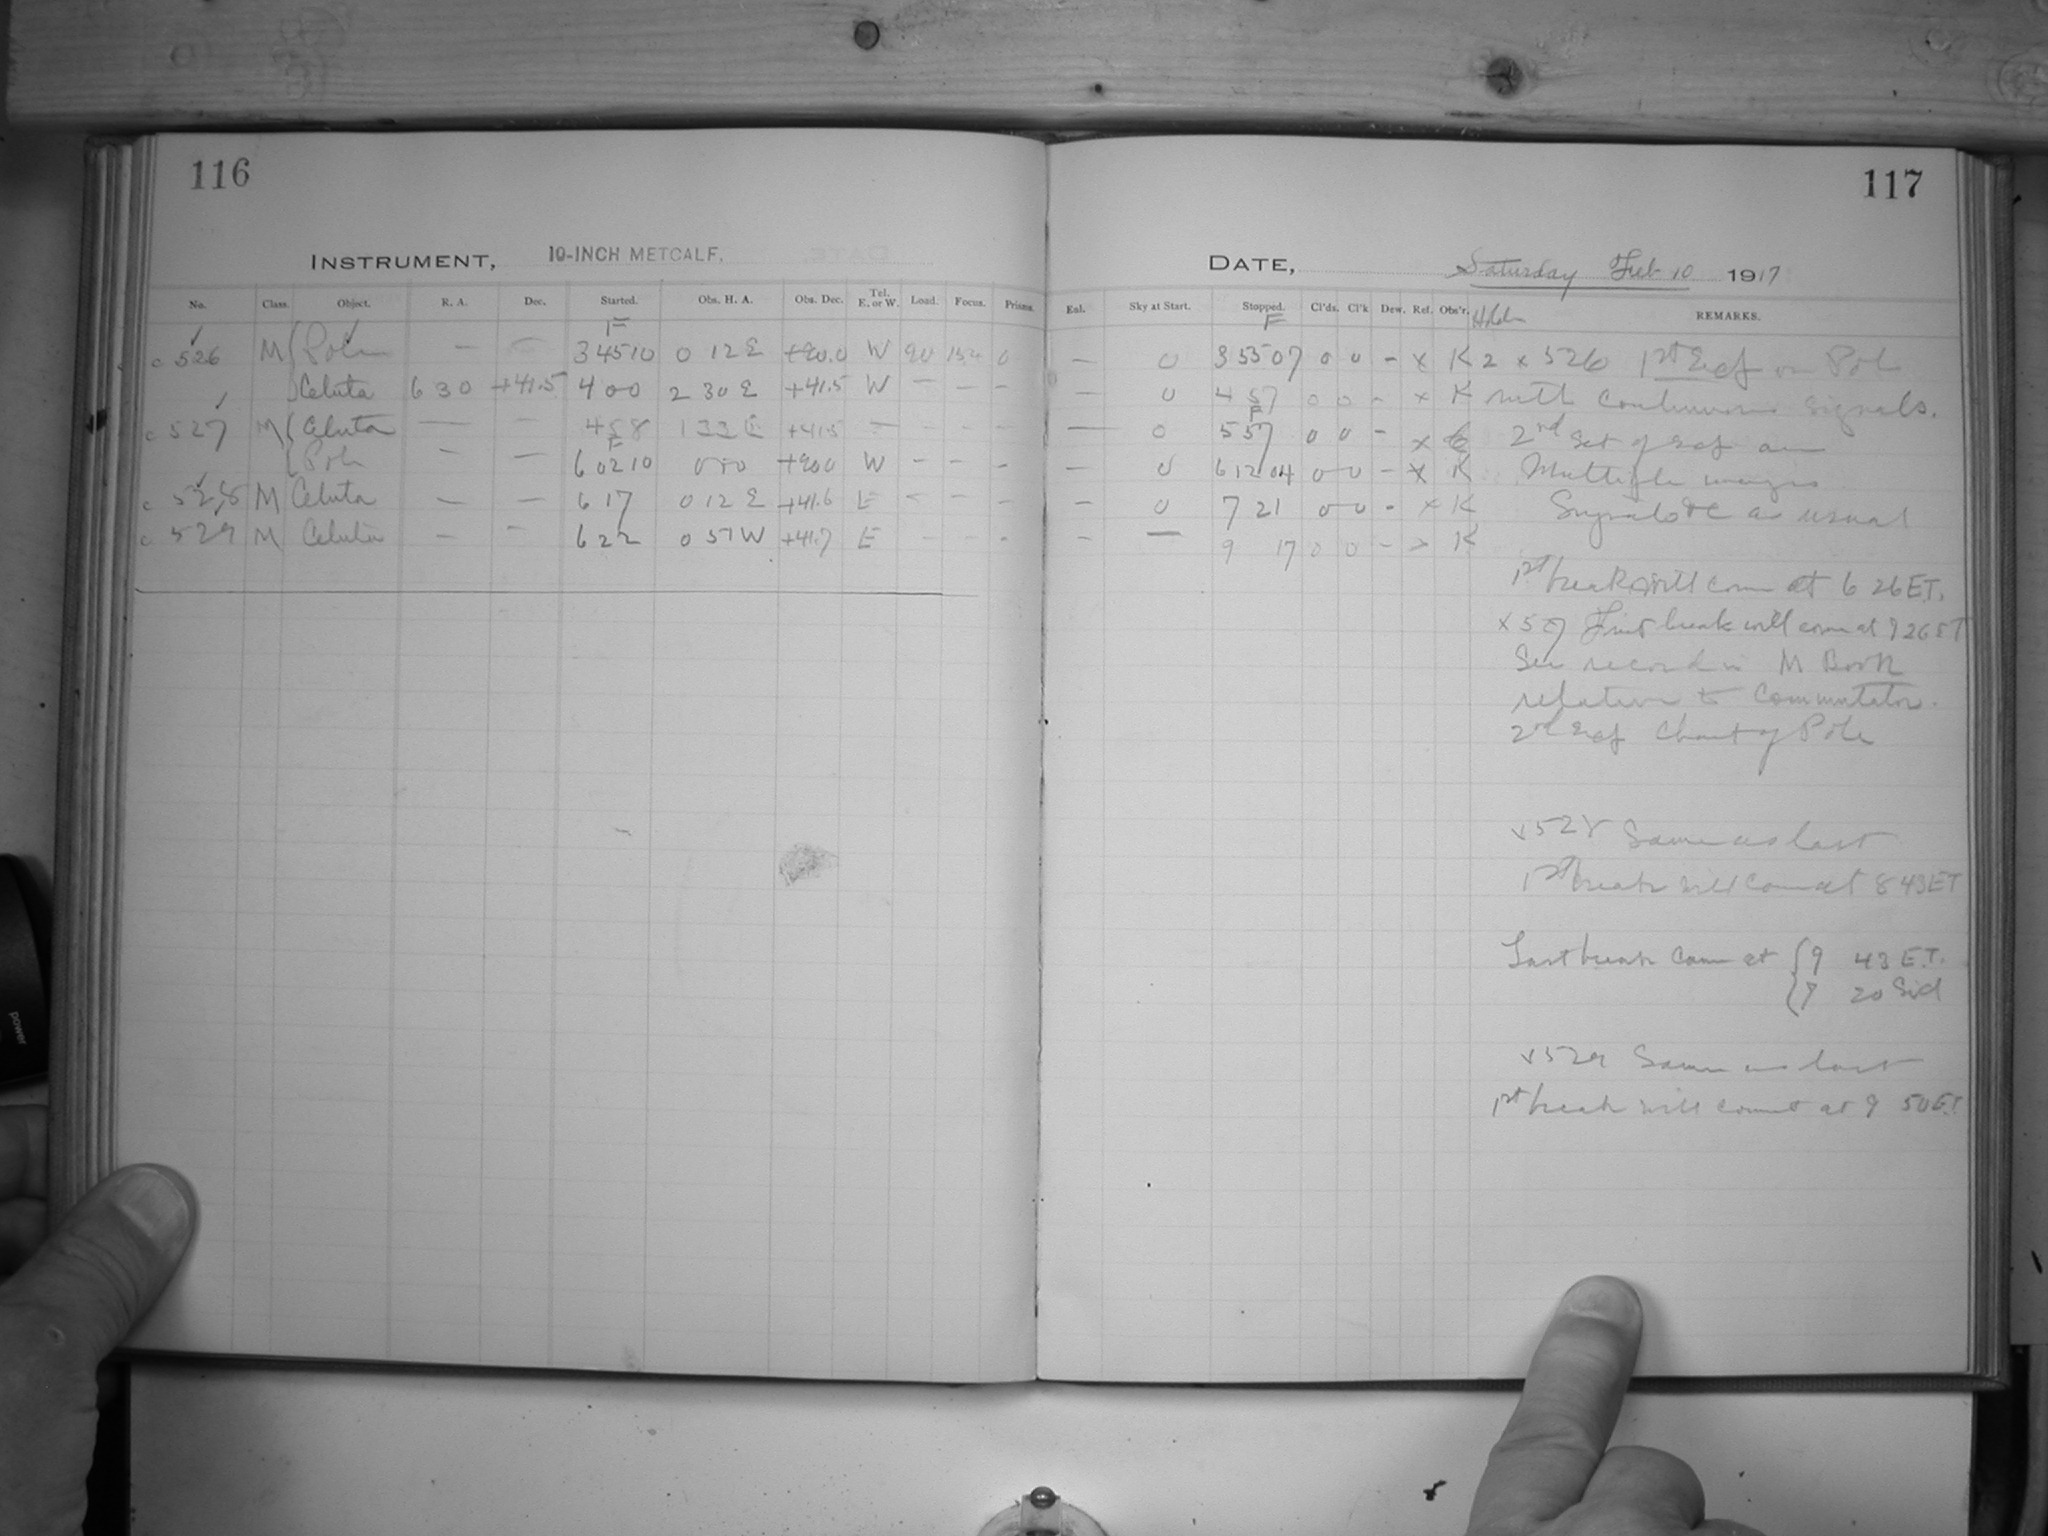 116
INSTRUMENT, 10-INCH METCALF.
No. Class. Object. R. A. Dec. Started. Obs. H. A. Obs. Dec. Tel. E. or W. Load. Focus. Prisms.
F
c 526 M 3 45 10 0 12 E +90.0 W 90 0
6 30 +41.5 4 00 2 30 E +41.5 W — — —
c 527 M — — 4 58 +41.5 — — — —
F
— — 6 02 10 +90.0 W - - -
c 528 M — — 6 17 0 12 E +41.6 E - - -
c 529 M — — 6 22 0 57 W +41.7 E - - -
117
DATE, Saturday Feb 10 1917
Exl. Sky at Start. Stopped. Cl'ds. Cl'k Dew. Ref. Obs'r. REMARKS.
F
— 0 3 55 07 0 0 - x K 2 x 526 1st on Pole
— 0 4 57 0 0 - x K with continuous signals.
F
— 0 5 57 0 0 - x 2nd set of
— 0 6 12 04 0 0 - x K Multiple images
- 0 7 21 0 0 - x K Signals &c as usual
- — 9 17 0 0 - x K
1st break will come at 6 26 E.T.
x 527 First break will come at 26 ET
See record in M Book
relative to Commutator.
2nd Chart of Pole
x 528 Same as last
1st break will come at 8 43 ET
Last break came at { 9 43 E.T.
{ 7 20 Sid
x 529 Same as last
1st break will come at 9 50 E.T.
power